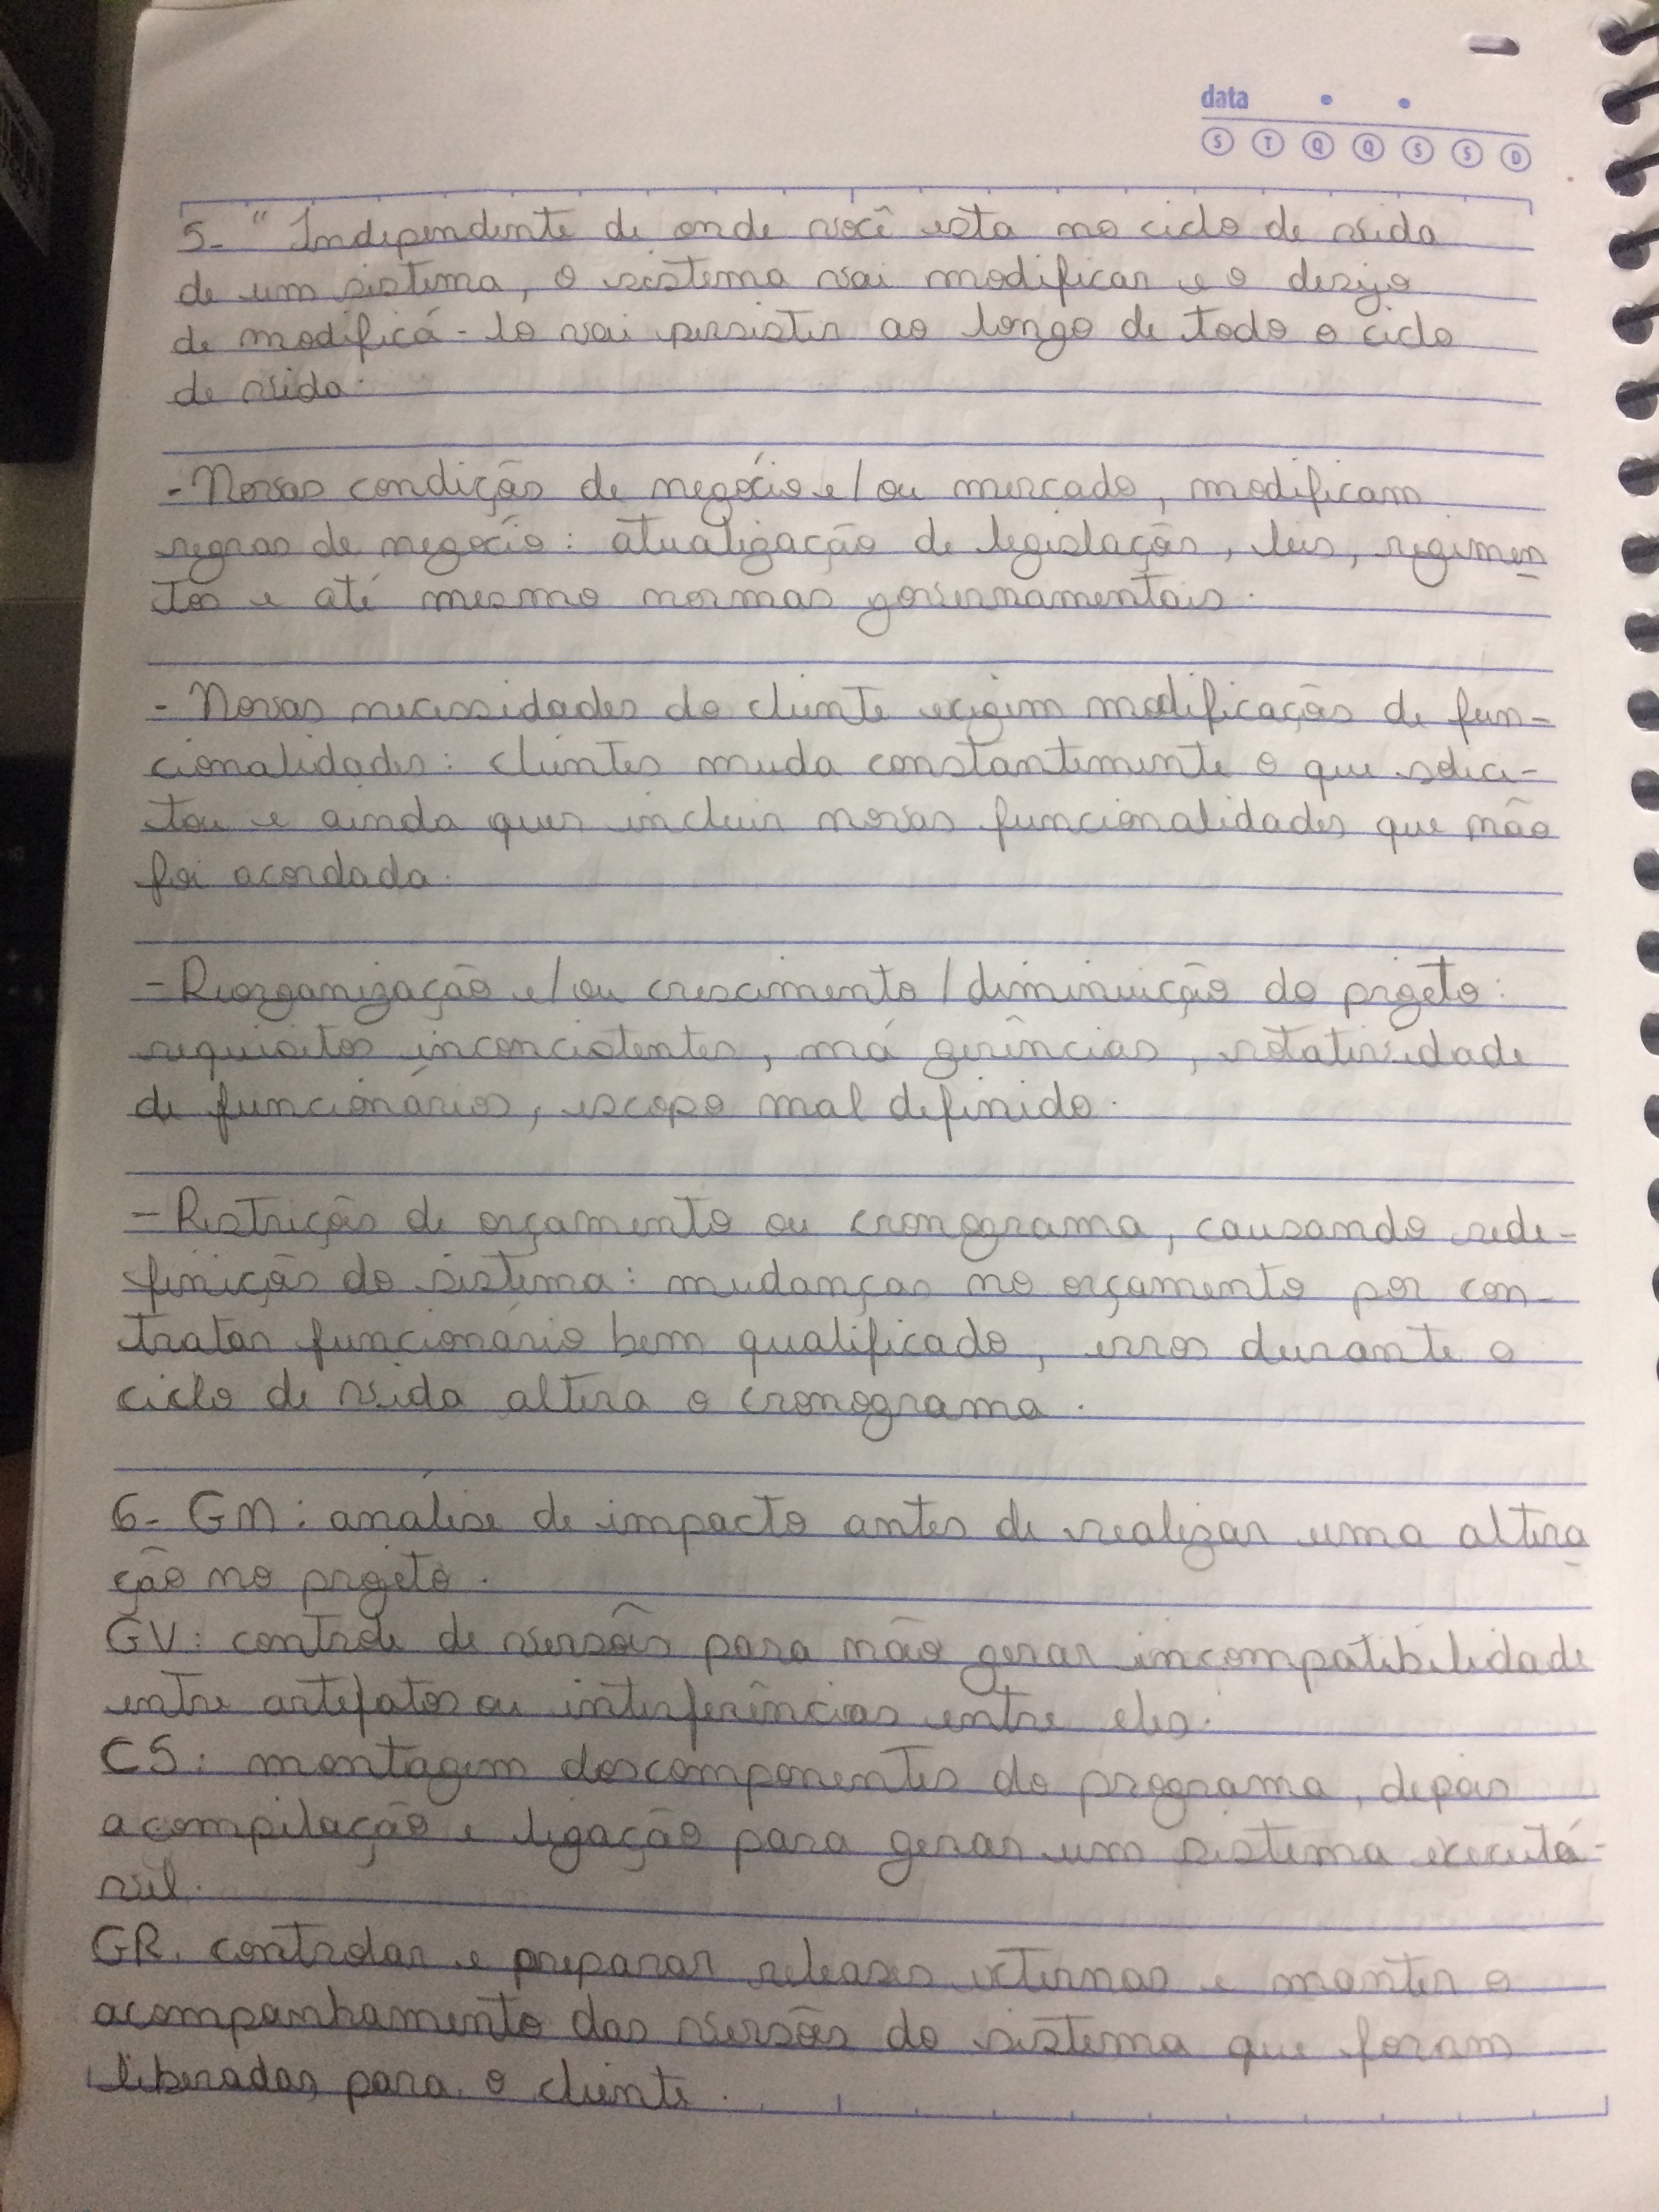 data
S T Q Q S S D
5- " Independente de onde você esta no ciclo de vida
de um sistema, o sistema vai modificar e o desejo
de modificá-lo vai persistir ao longo de todo o ciclo
de vida.
- Novas condições de negócio e/ou mercado, modificam
regras de negócio: atualização de legislação, leis, regimen
tos e até mesmo normas governamentais.
- Novas necessidades do cliente exigem modificações de fun-
cionalidades: clientes muda constantemente o que solici-
tou e ainda quer incluir novas funcionalidades que não
foi acordada.
- Reorganização e/ou crescimento/diminuição do projeto:
requisitos inconcistentes, má gerências, rotatividade
de funcionários, escopo mal definido.
- Restrições de orçamento ou cronograma, causando rede-
finição do sistema: mudanças no orçamento por con-
tratar funcionário bem qualificado, erros durante o
ciclo de vida altera o cronograma.
6- GM: análise de impacto antes de realizar uma altera
ção no projeto.
GV: controle de versões para não gerar incompatibilidade
entre artefatos ou interferências entre eles.
CS: montagem dos componentes do programa, depois
a compilação e ligação para gerar um sistema executá-
vel.
GR. controlar e preparar releases externas e manter o
acompanhamento das versões do sistema que foram
liberadas para o cliente.